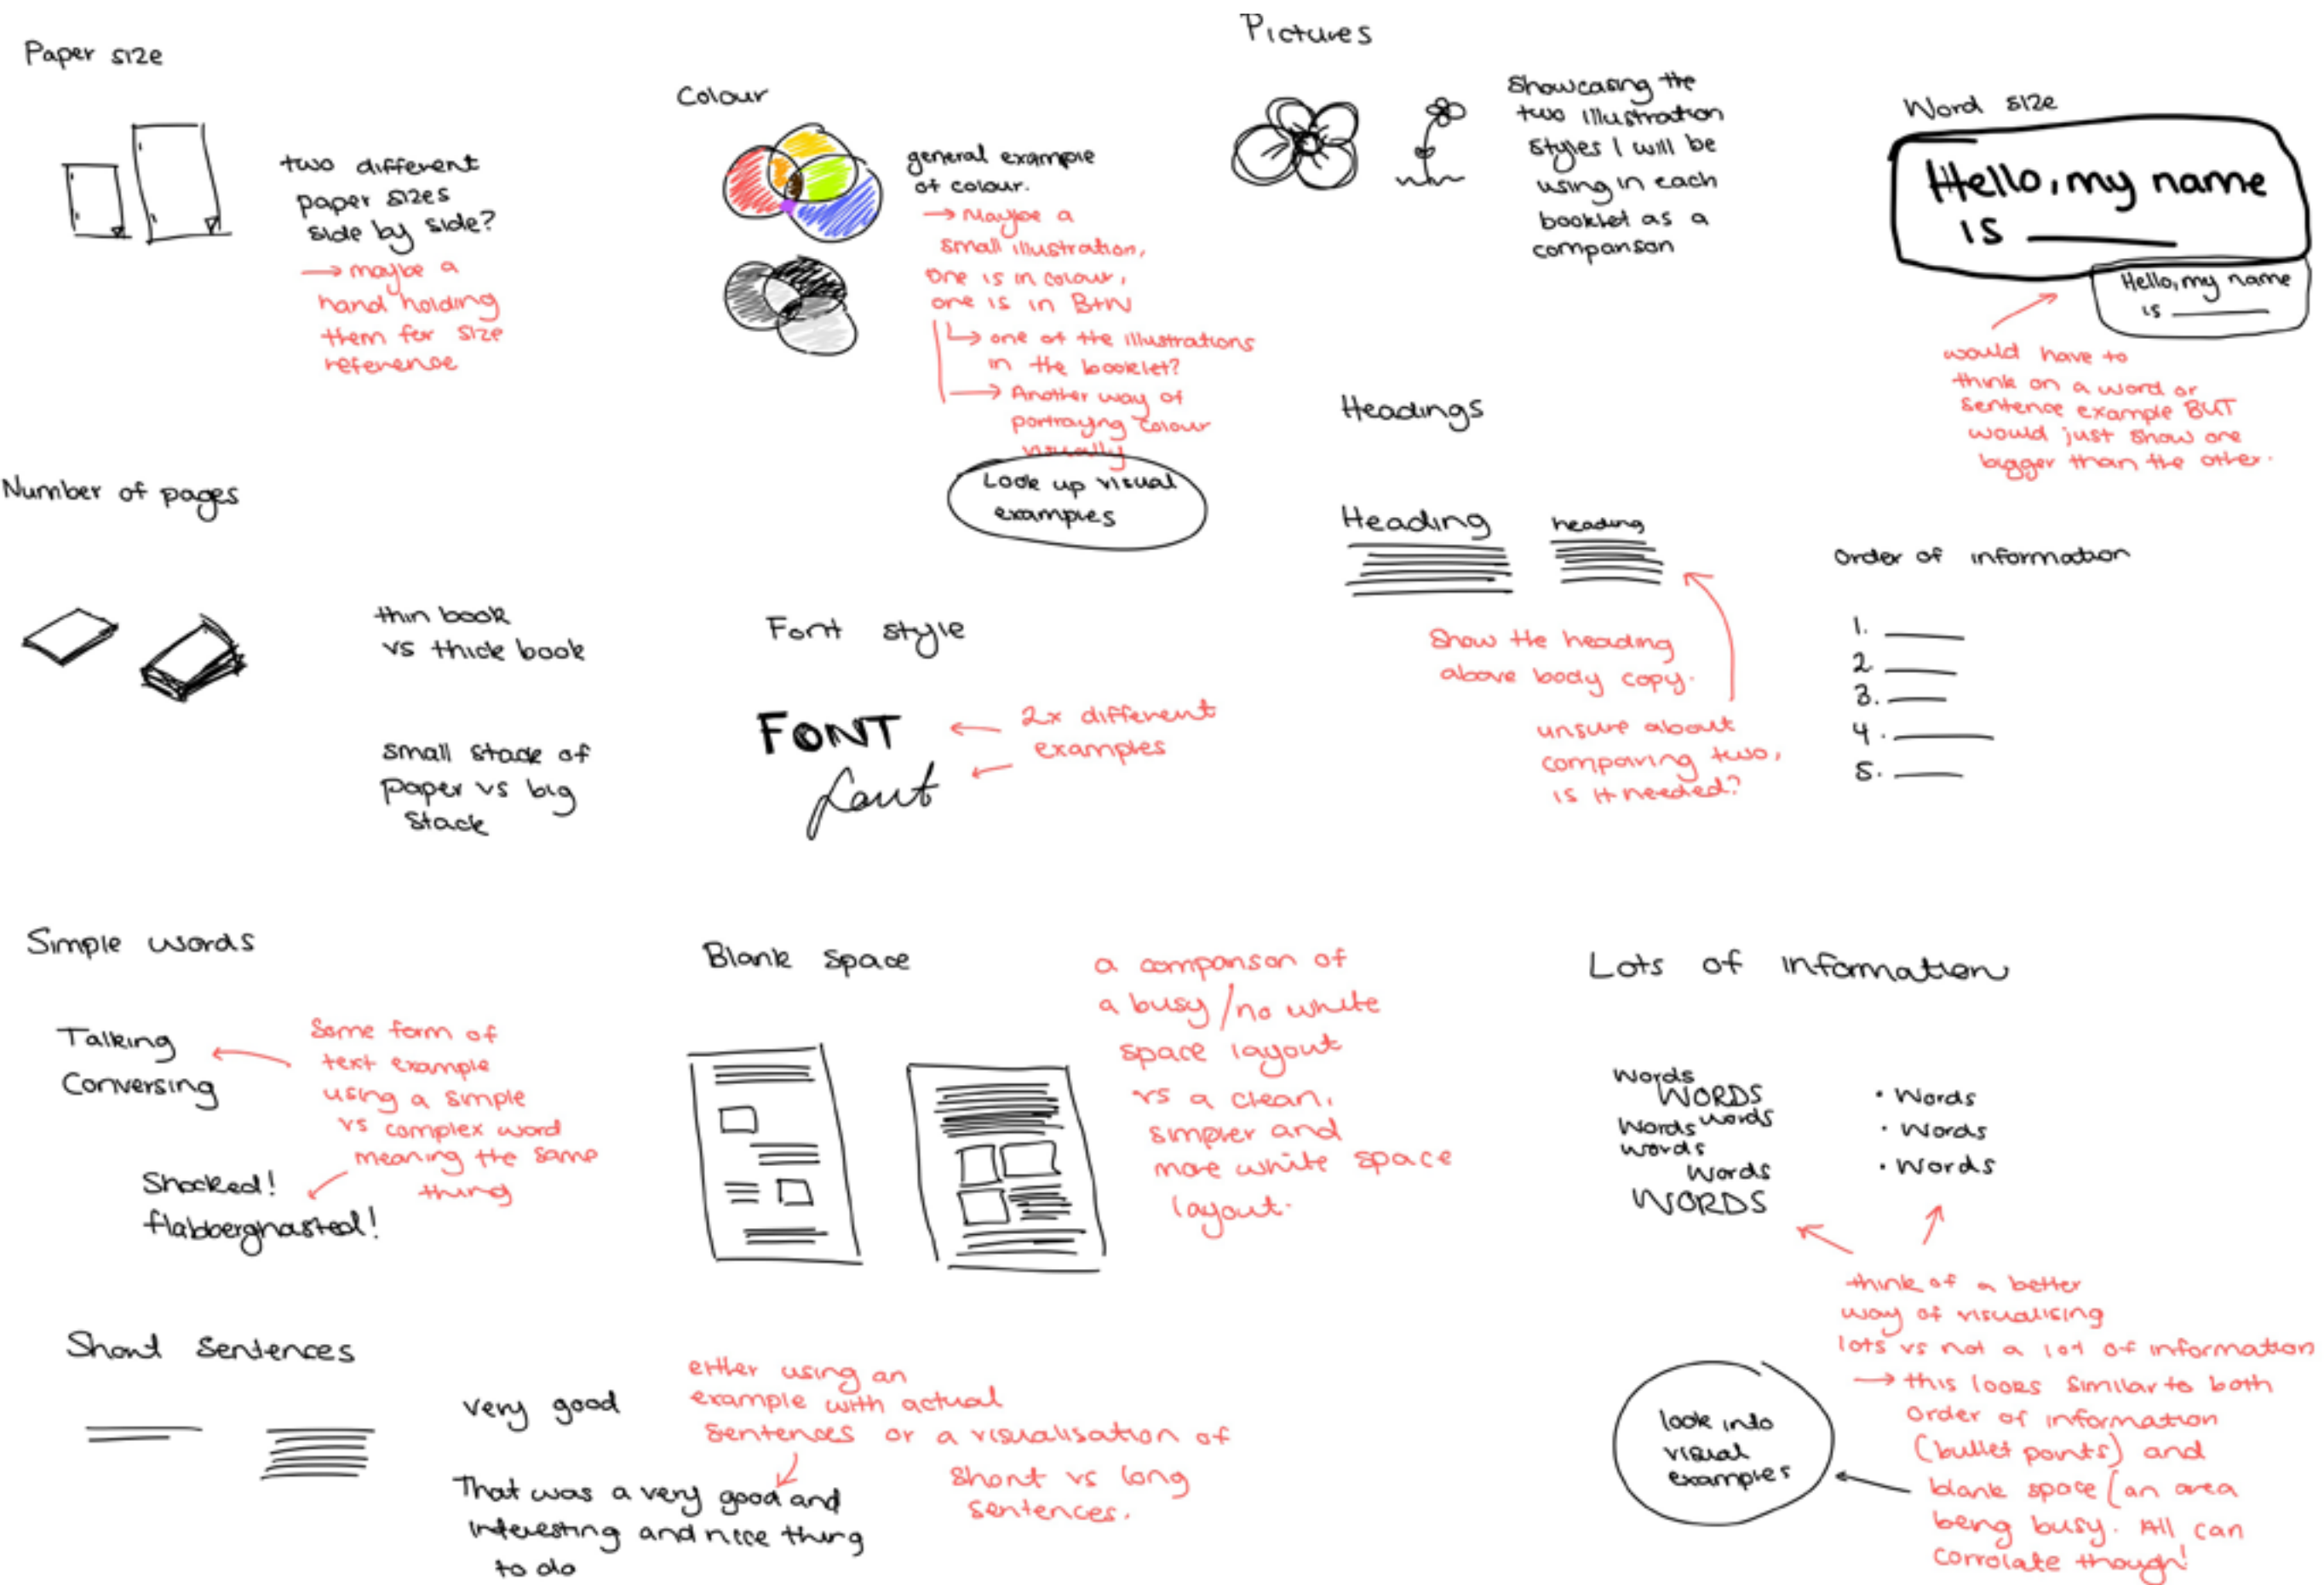 Paper size
two different
paper sizes
side by side?
→ maybe a
hand holding
them for size
reference
Colour
general example
of colour.
→ Maybe a
small illustration,
one is in colour,
one is in B+W
↳ one of the illustrations
in the booklet?
→ Another way of
portrayng colour
visually
Look up visual
examples
Pictures
Showcasing the
two illustration
styles I will be
using in each
booklet as a
comparison
Word size
Hello, my name
is ______
Hello, my name
is ______
would have to
think on a word or
sentence example BUT
would just show one
bigger than the other.
Number of pages
thin book
vs thick book
small stack of
paper vs big
stack
Font style
FONT
font
2x different
examples
Headings
Heading
heading
Show the heading
above body copy.
unsure about
comparing two,
is it needed?
Order of information
1.
2.
3.
4.
5.
Simple words
Talking
Conversing
Some form of
text example
using a simple
vs complex word
meaning the same
thing
Shocked!
flabberghasted!
Blank space
a comparison of
a busy / no white
space layout
vs a clean,
simpler and
more white space
layout.
Lots of information
Words
WORDS
Words words
words
Words
WORDS
• Words
• Words
• Words
think of a better
way of visualising
lots vs not a lot of information
→ this looks similar to both
Order of information
(bullet points) and
blank space (an area
being busy. All can
corrolate though!
look into
visual
examples
Short sentences
very good
That was a very good and
interesting and nice thing
to do
either using an
example with actual
sentences or a visualisation of
short vs long
sentences.